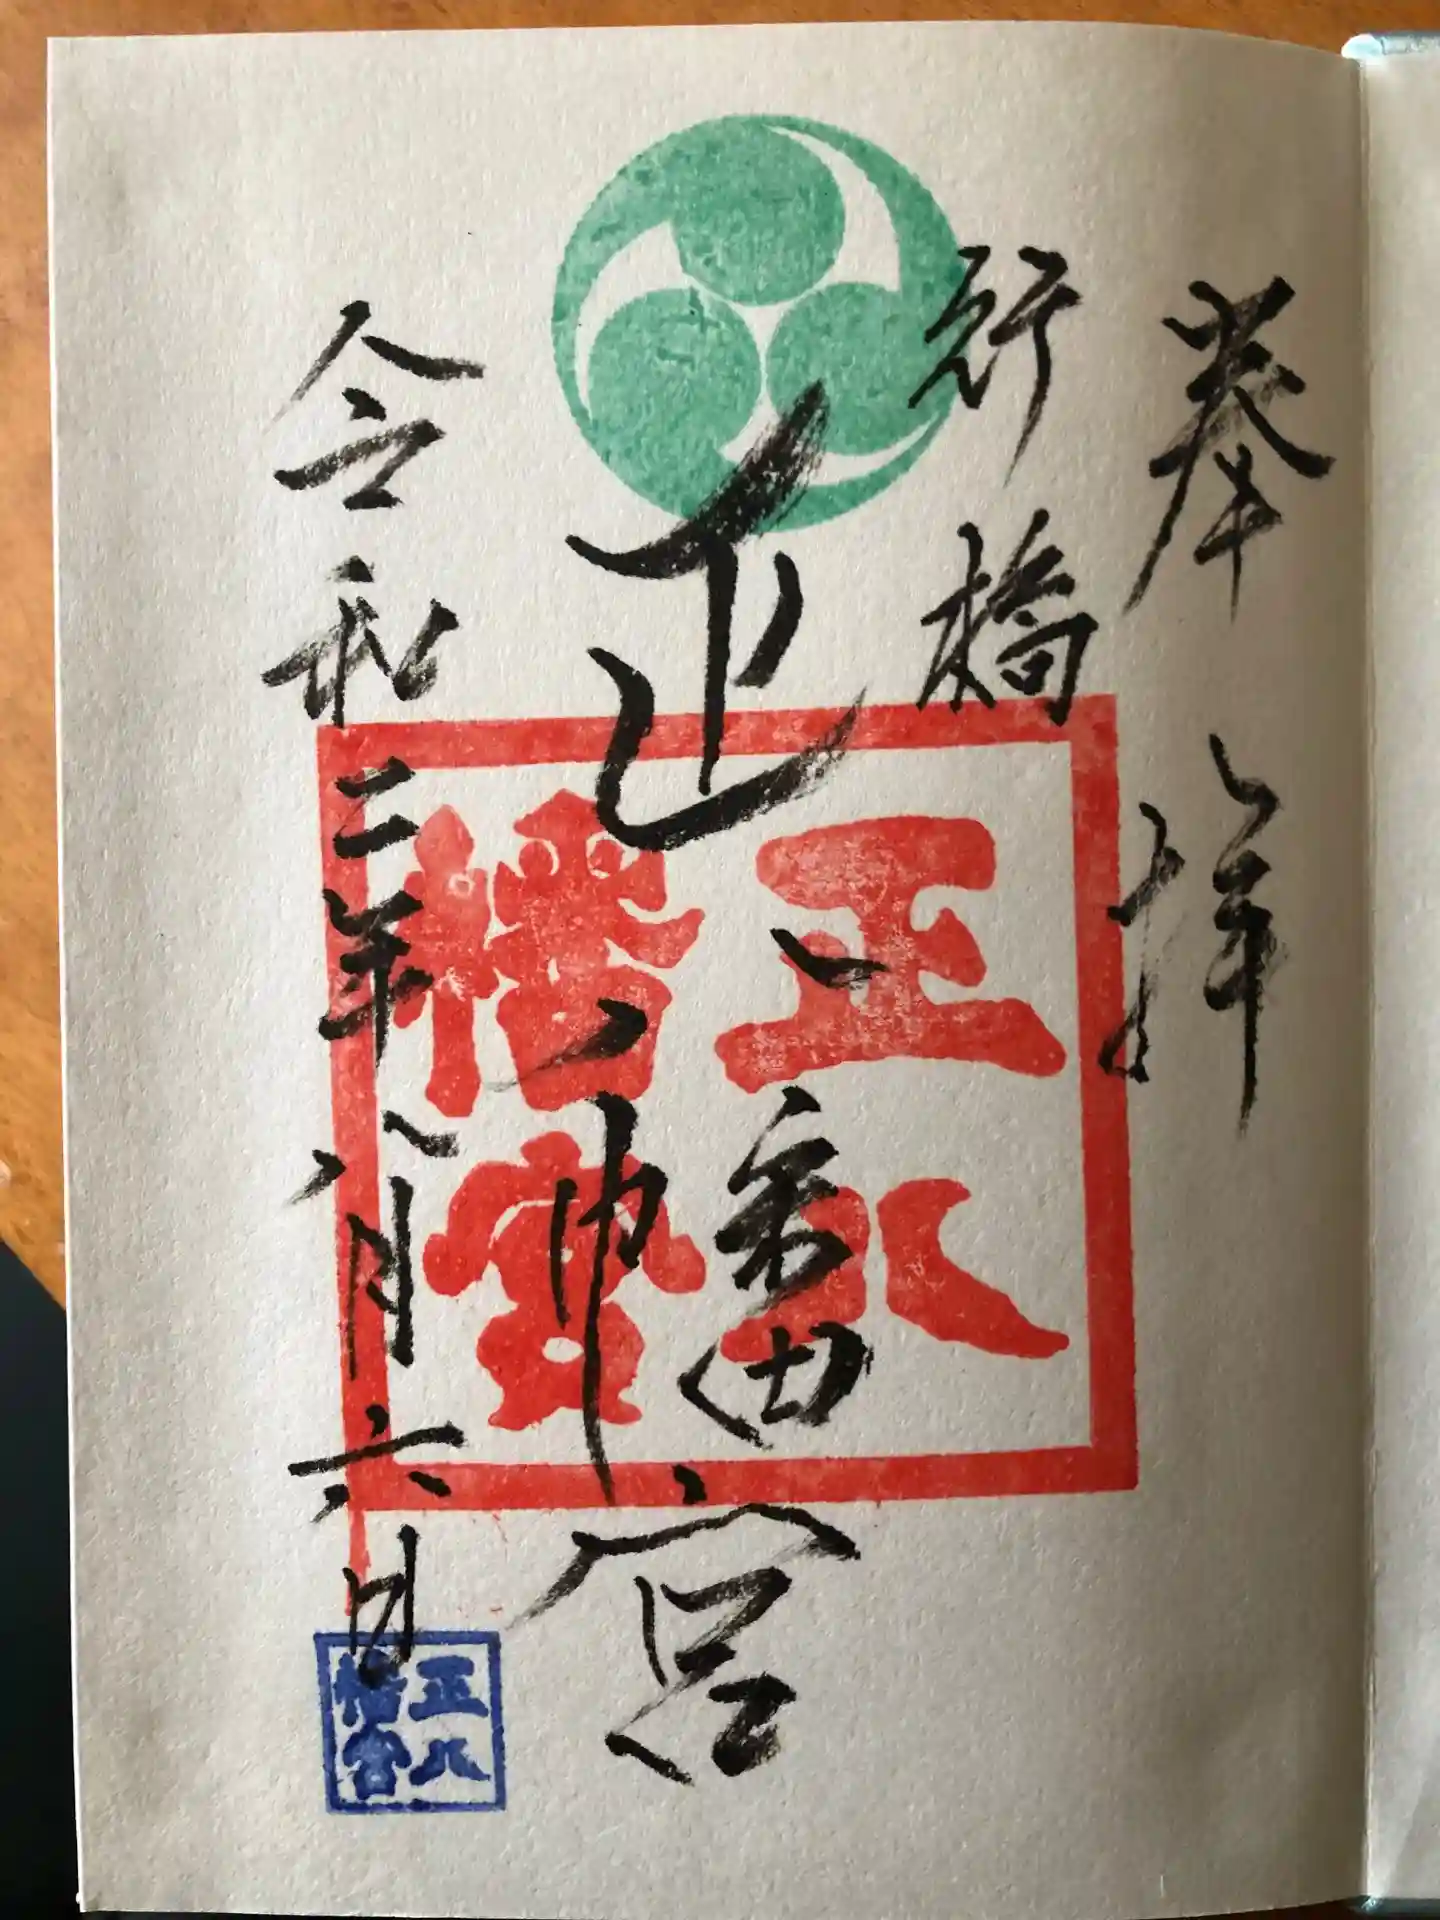 奉拝
行橋
正八幡宮
令和二年八月六日
正八
幡宮
正八
幡宮